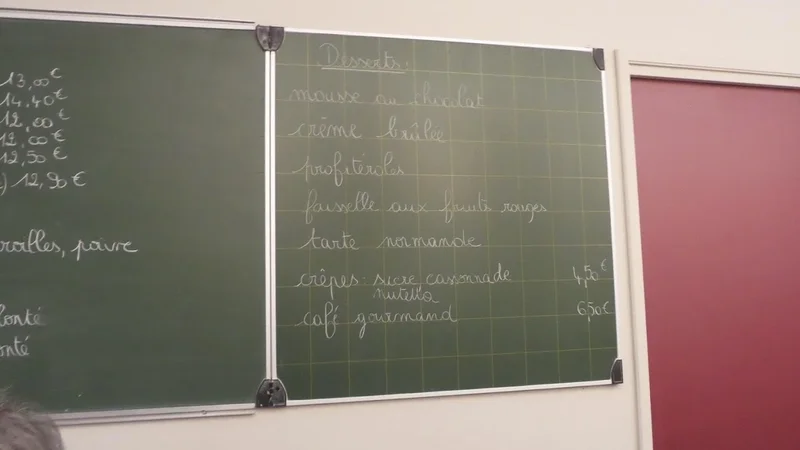 13,00€
14,40€
12,00€
12,00€
12,50€
) 12,90€
rolles, poivre
onté
onté
Desserts:
mousse au chocolat
crème brûlée
profitéroles
faisselle aux fruits rouges
tarte normande
crêpes: sucre cassonnade 4,50€
nutella
café gourmand 6,50€